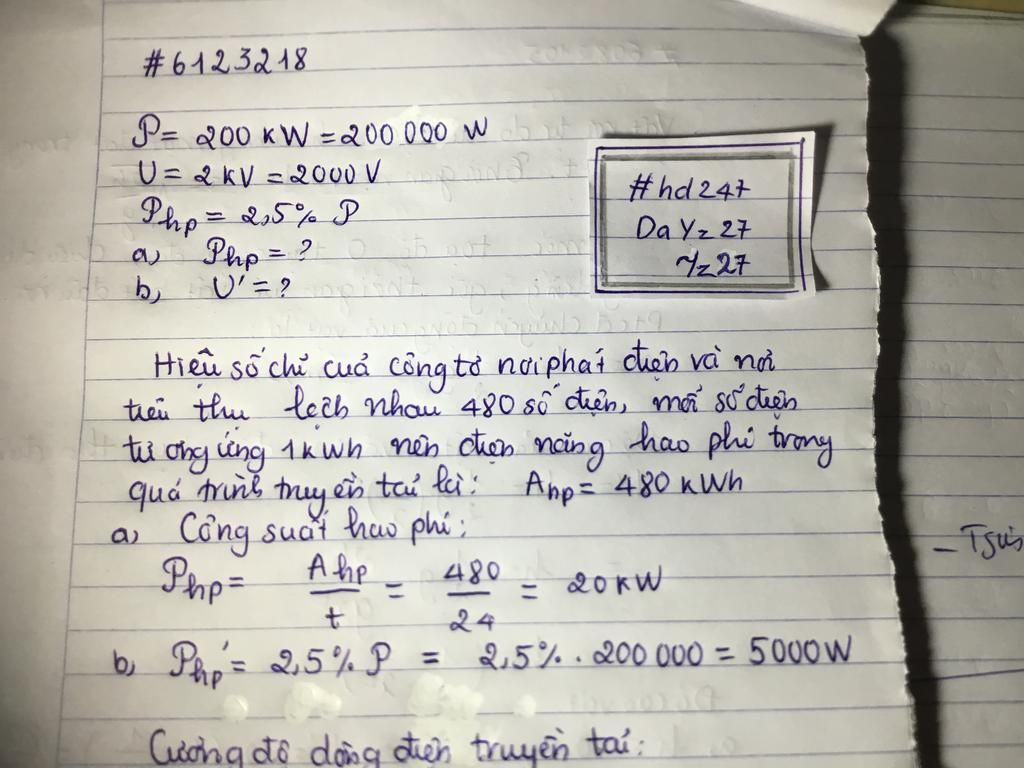 #6123218
P = 200 kW = 200 000 W
U = 2 kV = 2000 V
Php = 2,5% P
a, Php = ?
b, U' = ?
#hd247
DaY = 27
γ = 27
Hiệu số chỉ cuả công tơ nơi phát điện và nơi
tiêu thụ lệch nhau 480 số điện, mỗi số điện
tương ứng 1kWh nên điện năng hao phí trong
quá trình truyền tải là: Ahp = 480 kWh
a, Công suất hao phí:
Php = Ahp/t = 480/24 = 20 kW
b, Php' = 2,5% P = 2,5% . 200 000 = 5000 W
Cường độ dòng điện truyền tải: